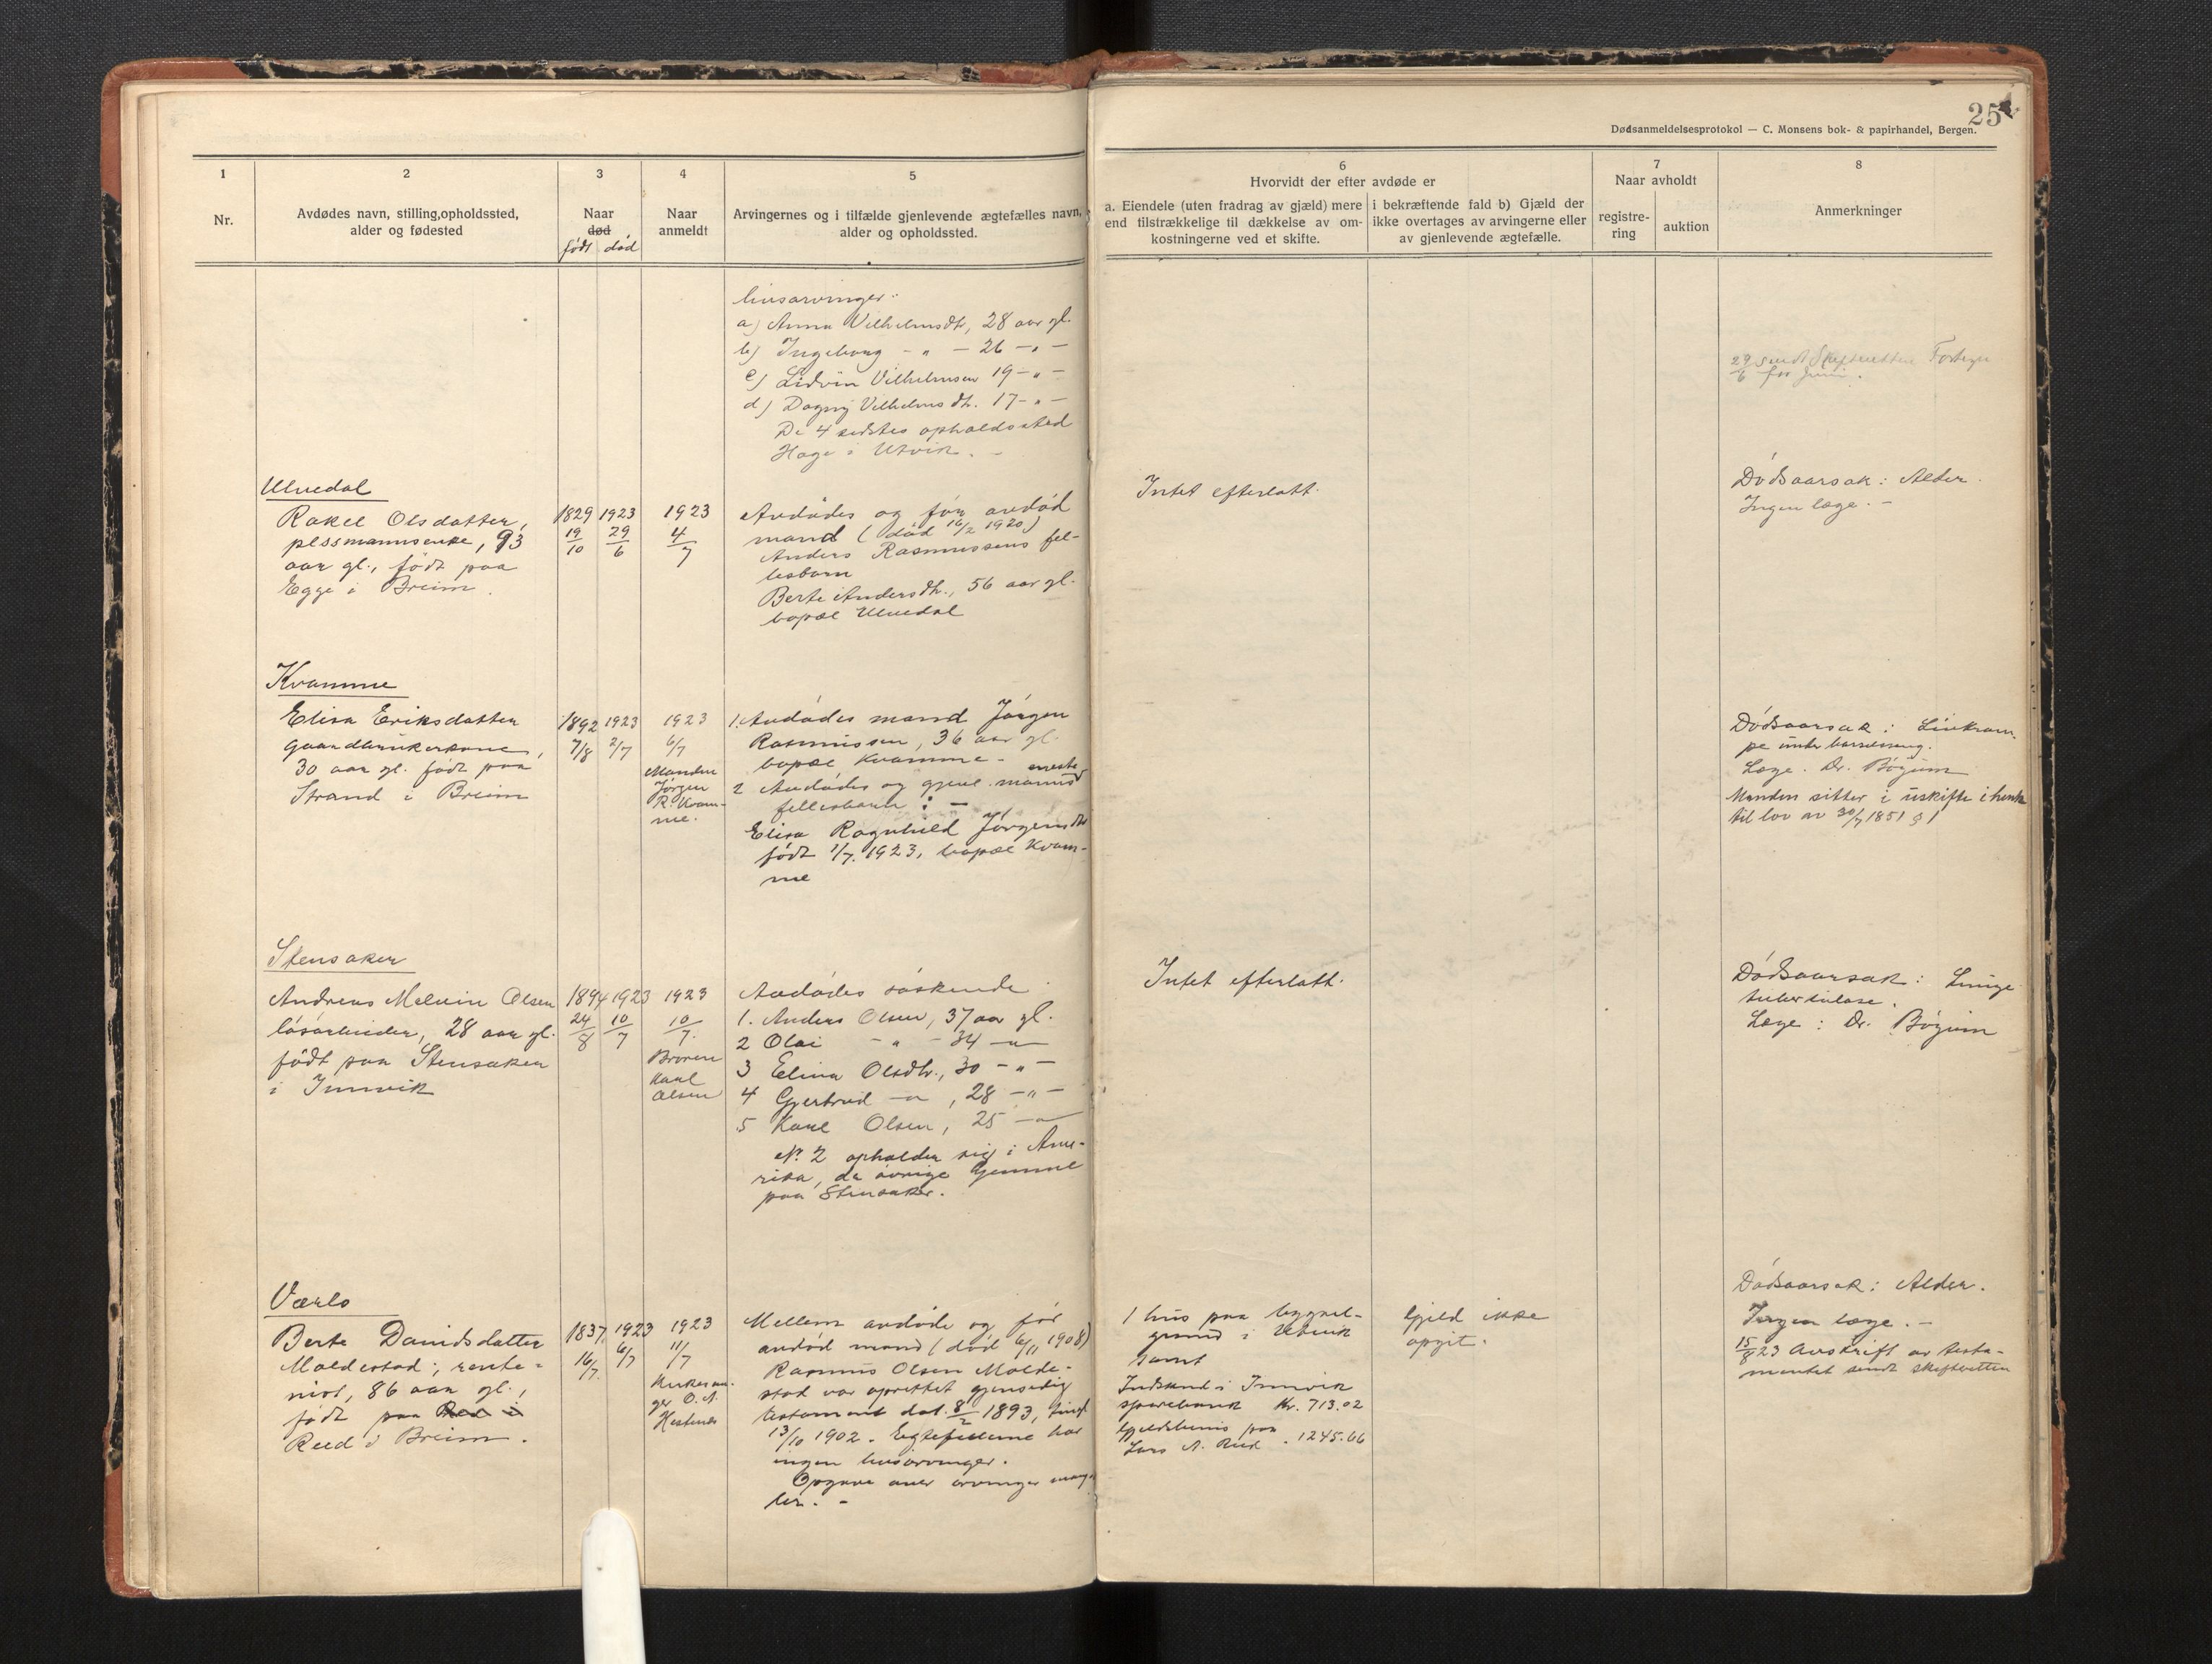 25
Dødsanmeldelsesprotokol — C. Monsens bok- & papirhandel, Bergen.
1
Nr.
2
Avdødes navn, stilling,opholdssted,
alder og fødested
3
Naar
død
født død
4
Naar
anmeldt
5
Arvingernes og i tilfælde gjenlevende ægtefælles navn,
alder og opholdssted.
6
Hvorvidt der efter avdøde er
a. Eiendele (uten fradrag av gjæld) mere
end tilstrækkelige til dækkelse av om-
kostningerne ved et skifte.
i bekræftende fald b) Gjæld der
ikke overtages av arvingerne eller
av gjenlevende ægtefælle.
7
Naar avholdt
registre-
ring
auktion
8
Anmerkninger
livsarvinger:
a) Anna Vilhelmsdtr, 28 aar gl.
b) Ingeborg - " - 26 - " -
c) Lidvin Vilhelmsen 19 - " -
d) Dagny Vilhelmsdtr. 17 - " -
De 4 sidstes opholdssted
Hage i Utvik. -
29/6 sendt Skifteretten Fortegn
for Juni.
Ulvedal
Rakel Olsdatter,
plssmannsenke, 93
aar gl., født paa
Egge i Breim.
1829 19/10
1923 29/6
1923
4/7
Avdødes og før avdød
mand (død 16/2 1920)
Anders Rasmussens fel-
lesbarn
Berte Andersdtr., 56 aar gl.
bopæl Ulvedal
Intet efterlatt.
Dødsaarsak: Alder.
Ingen læge. -
Kvamme
Elisa Eriksdatter
gaardbrukerkone,
30 aar gl. født paa
Strand i Breim
1892 7/8
1923 2/7
1923
6/7
Manden
Jørgen
R. Kvam-
me.
1. Avdødes mand Jørgen
Rasmussen, 36 aar gl.
bopæl Kvamme -
2 Avdødes og gjenl. mands eneste
fellesbarn: -
Elisa Ragnhild Jørgensdtr
født 1/7. 1923, bopæl Kvam-
me
Dødsaarsak: Livkram-
pe under barselseng.
Læge. Dr. Bøgum
Manden sitter i uskifte i henh
til lov av 30/7 1851 § 1
Stensaker
Andreas Melvin Olsen
løsarbeider, 28 aar gl.
født paa Stensaker
i Innvik
1894 24/8
1923 10/7
1923
10/7.
Broren
Karl
Olsen
Avdødes søskende
1. Anders Olsen, 37 aar gl.
2 Olai - " - 34 - " -
3 Elina Olsdtr., 30 - " -
4 Gjertrud - " -, 28 - " -
5 Karl Olsen, 25 - " -
Nr. 2 opholder sig i Ame-
rika, de øvrige hjemme
paa Stensaker.
Intet efterlatt.
Dødsaarsak: Lunge-
tuberkulose.
Læge: Dr. Bøgum
Værlo
Berte Davidsdatter
Moldestad, rente-
nist, 86 aar gl.,
født paa Red i
Reed i Breim.
1837. 16/7.
1923 6/7
1923
11/7
Kirkesan-
ger O. A.
Hestenes
Mellem avdøde og før
avdød mand (død 6/11 1908)
Rasmus Olsen Molde-
stad var oprettet gjensidig
testament dat. 8/2 1893, tingl.
13/10 1902. Egtefellerne har
ingen livsarvinger.
Opgave over arvinger mang-
ler. -
1 hus paa bygsel-
grund i Utvik
samt
Indskud i Innvik
sparebank Kr. 713.02
Gjeldsbevis paa
Lars A. Reed - 1245.66
Gjeld ikke
opgit.
Dødsaarsak: Alder.
Ingen læge. -
15/8 23 Avskrift av testa-
mentet sendt skifteretten